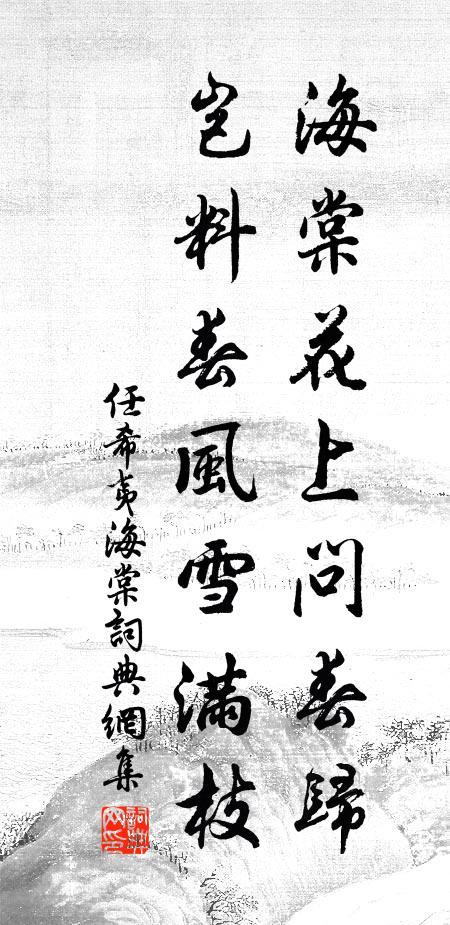 海棠花上問春歸
豈料春風雪滿枝
任希夷海棠詞典網集